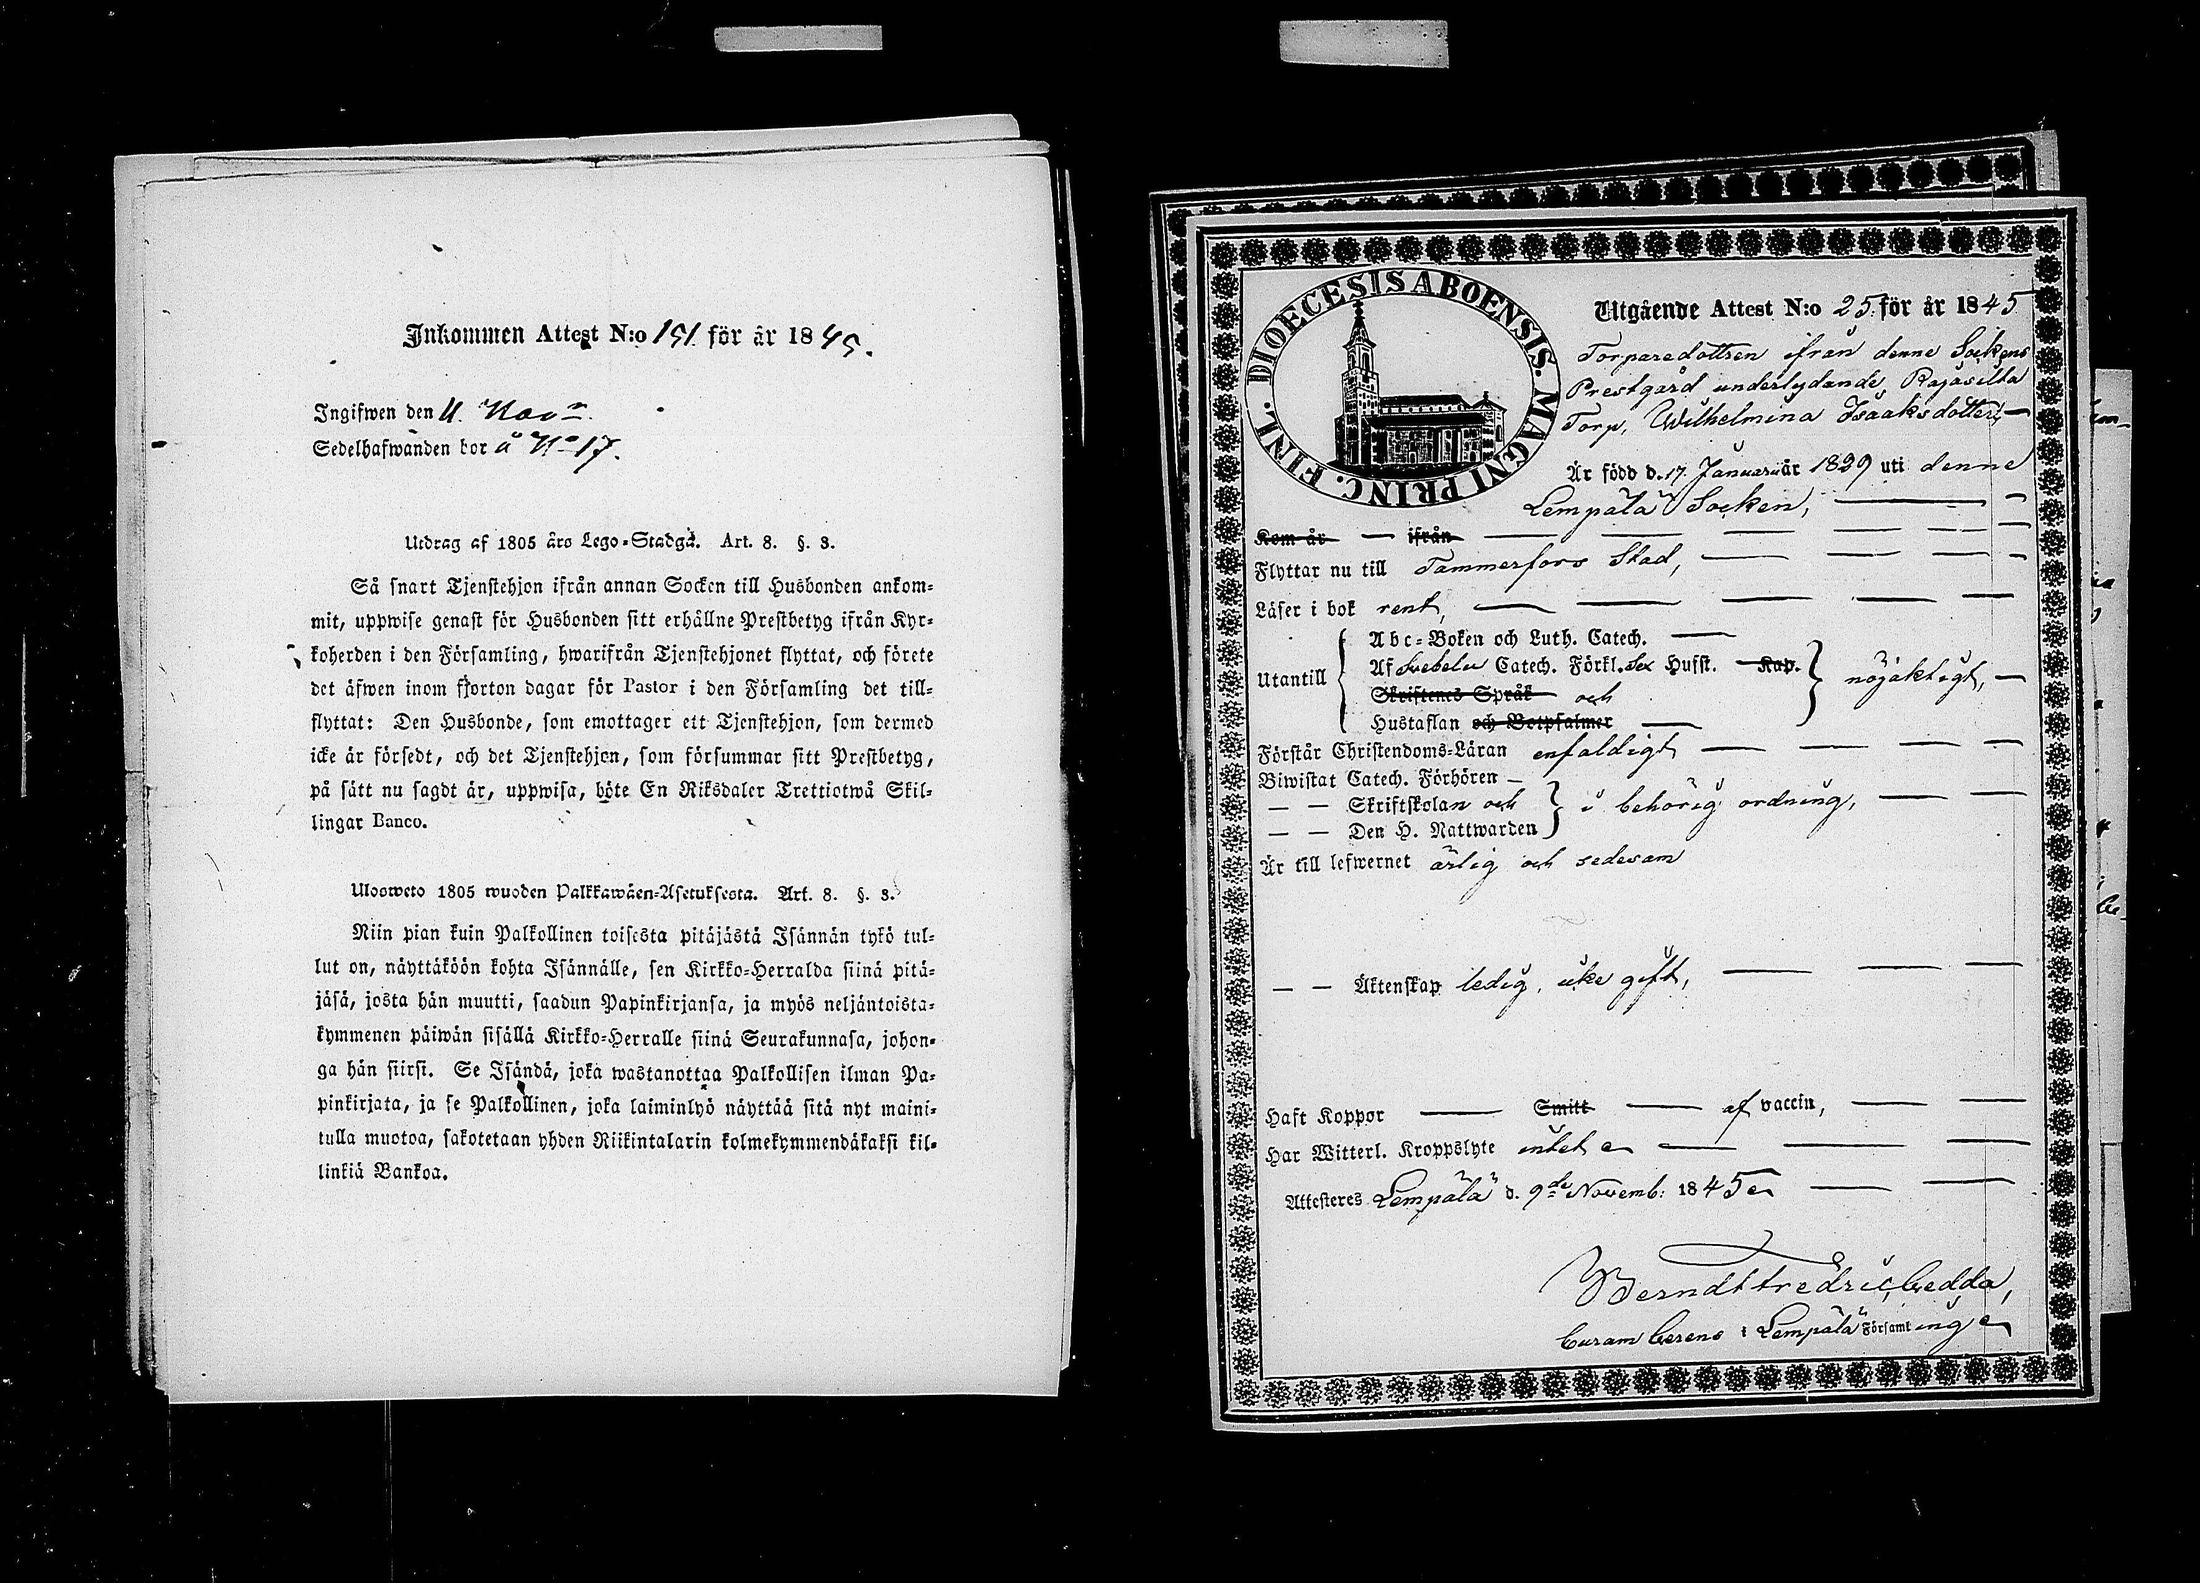 Inkommen Attest N:o 151 för år 1845.
Ingifwen den 11 Nov:r
Sedelhafwanden bor å N:o 17.
Utdrag af 1805 års Lego-Stadga. Art. 8. §. 3.
Så snart Tjenstehjon ifrån annan Socken till Husbonden ankom-
mit, uppwise genast för Husbonden sitt erhållne Prestbetyg ifrån Kyr-
koherden i den Församling, hwarifrån Tjenstehjonet flyttat, och förete
det äfwen inom fjorton dagar för Pastor i den Församling det till-
flyttat: Den Husbonde, som emottager ett Tjenstehjon, som dermed
icke är försedt, och det Tjenstehjon, som försummar sitt Prestbetyg,
på sätt nu sagdt är, uppwisa, böte En Riksdaler Trettiotwå Skil-
lingar Banco.
Ulosweto 1805 wuoden Palkkawäen-Asetuksesta. Art. 8. §. 3.
Niin pian kuin Palkollinen toisesta pitäjästä Isännän tykö tul-
lut on, näyttäköön kohta Isännälle, sen Kirkko-Herralda siinä pitä-
jäsä, josta hän muutti, saadun Papinkirjansa, ja myös neljäntoista-
kymmenen päiwän sisällä Kirkko-Herralle siinä Seurakunnasa, johon-
ga hän siirsi. Se Isändä, joka wastanottaa Palkollisen ilman Pa-
pinkirjata, ja se Palkollinen, joka laiminlyö näyttää sitä nyt maini-
tulla muotoa, sakotetaan yhden Riikintalarin kolmekymmendäkaksi kil-
linkiä Bankoa.
DIOECESIS ABOENSIS. MAGNI PRINC. FINL.
Utgående Attest N:o 25 för år 1845
Torparedottren ifrån denne Sockens
Prestgård underlydande Rajasilta
Torp, Wilhelmina Isaaksdotter,
Är född d. 17 Januarii år 1829 uti denne
Lempälä Socken,
Kom år ifrån
Flyttar nu till Tammerfors Stad,
Läser i bok rent,
Utantill
Abc-Boken och Luth. Catech.
Af Svebelii Catech. Förkl. Sex Hufst. Kap.
Skriftenes Språk och
Hustaflan och Botpsalmer
nöjaktigt,
Förstår Christendoms-Läran enfaldigt
Biwistat Catech. Förhören
Skriftskolan och
Den H. Nattwarden
i behörig ordning,
Är till lefwernet ärlig och sedesam
Äktenskap ledig, icke gift,
Haft Koppor Smitt af vaccin,
Har Witterl. Kroppslyte intet
Attesteres Lempälä d. 9de Novemb: 1845
Berndt Fredric Gedda,
Curam Gerens i Lempälä Församling